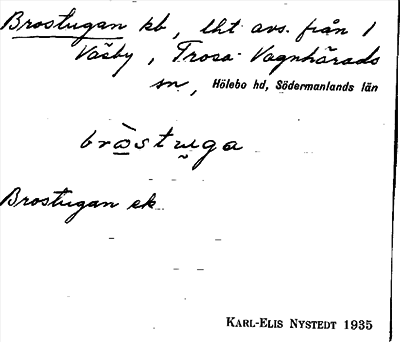 Brostugan kb, lht avs. från 1
Väsby, Trosa-Vagnhärads
sn, Hölebo hd, Södermanlands län
bròstuga
Brostugan ek
KARL-ELIS NYSTEDT 1935